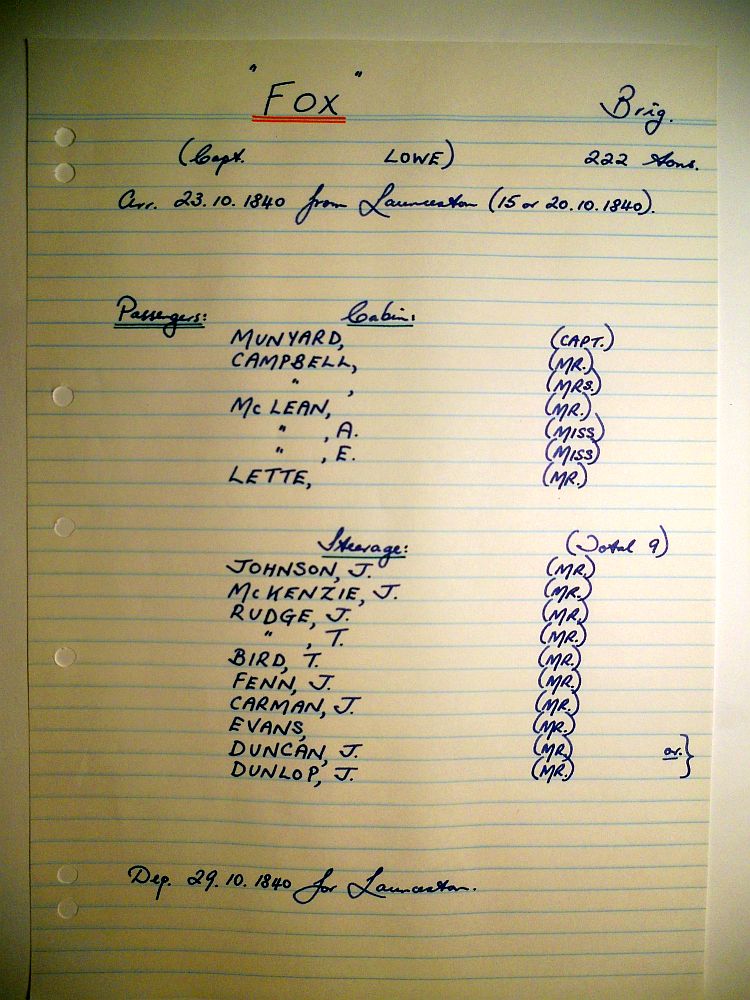 "FOX" Brig.
(Capt. LOWE) 222 tons.
Arr. 23.10.1840 from Launceston (15 or 20.10.1840).
Passengers: Cabin:
MUNYARD, (CAPT.)
CAMPBELL, (MR.)
" , (MRS.)
McLEAN, (MR.)
" , A. (MISS)
" , E. (MISS)
LETTE, (MR.)
Steerage: (Total 9)
JOHNSON, J. (MR.)
McKENZIE, J. (MR.)
RUDGE, J. (MR.)
" , T. (MR.)
BIRD, T. (MR.)
FENN, J. (MR.)
CARMAN, J. (MR.)
EVANS, (MR.)
DUNCAN, J. (MR.) or }
DUNLOP, J. (MR.)
Dep. 29.10.1840 for Launceston.